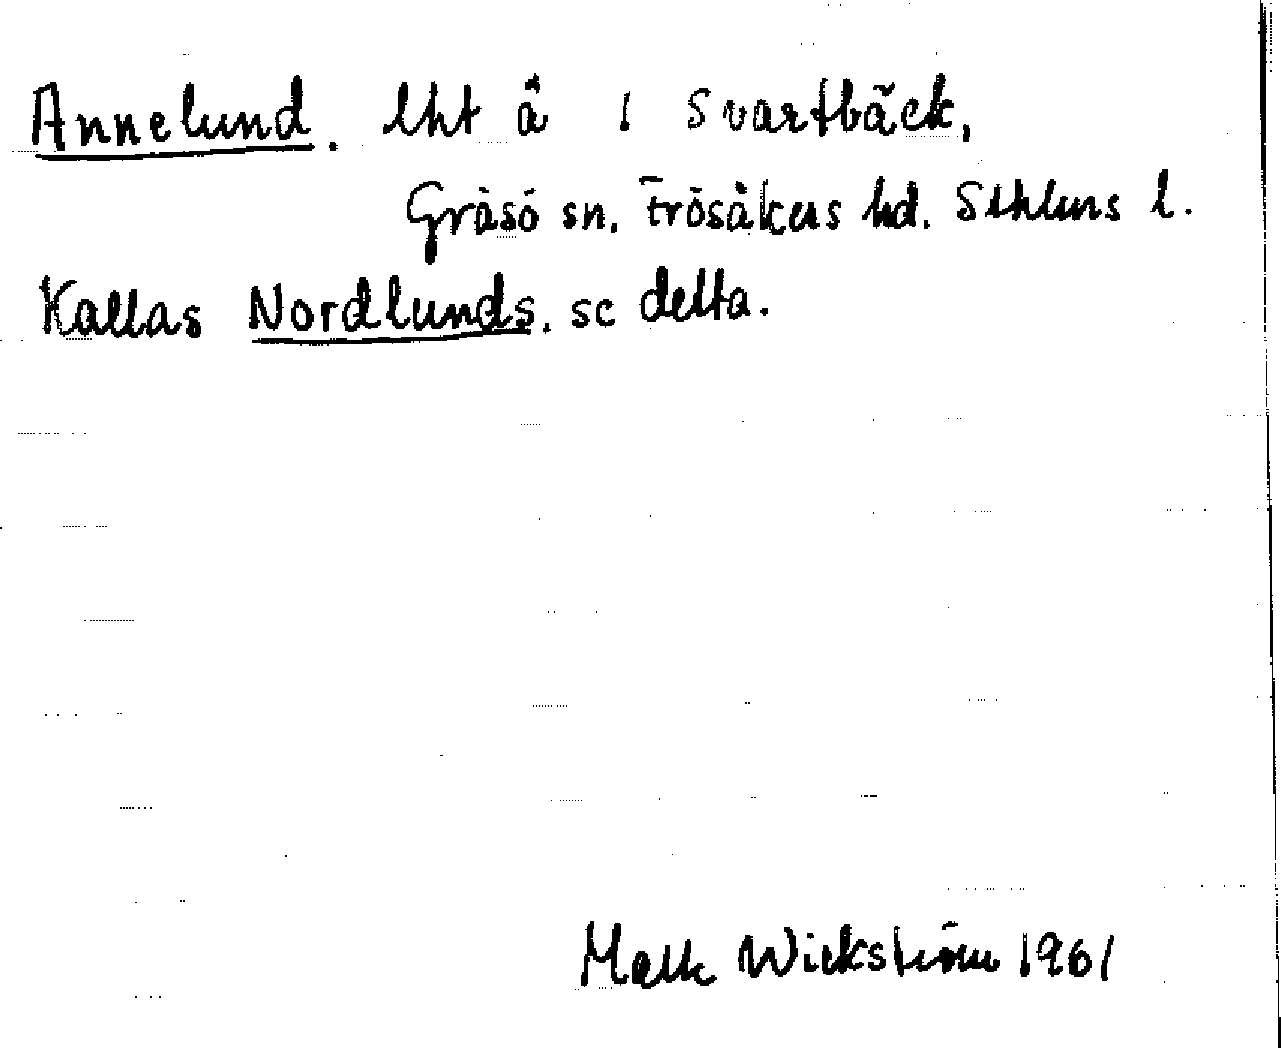 Annelund. lht å 1 Svartbäck,
Gräsö sn. Frösåkers hd. Sthlms l.
Kallas Nordlunds. se detta.
Wickström 1961